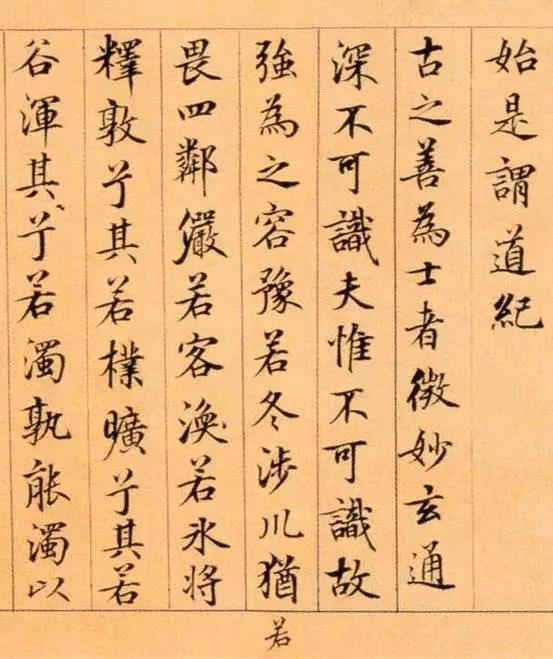 始是謂道紀
古之善為士者微妙玄通
深不可識夫惟不可識故
強為之容豫若冬涉川猶
若
畏四鄰嚴若客渙若氷將
釋敦兮其若樸曠兮其若
谷渾其兮若濁孰能濁以